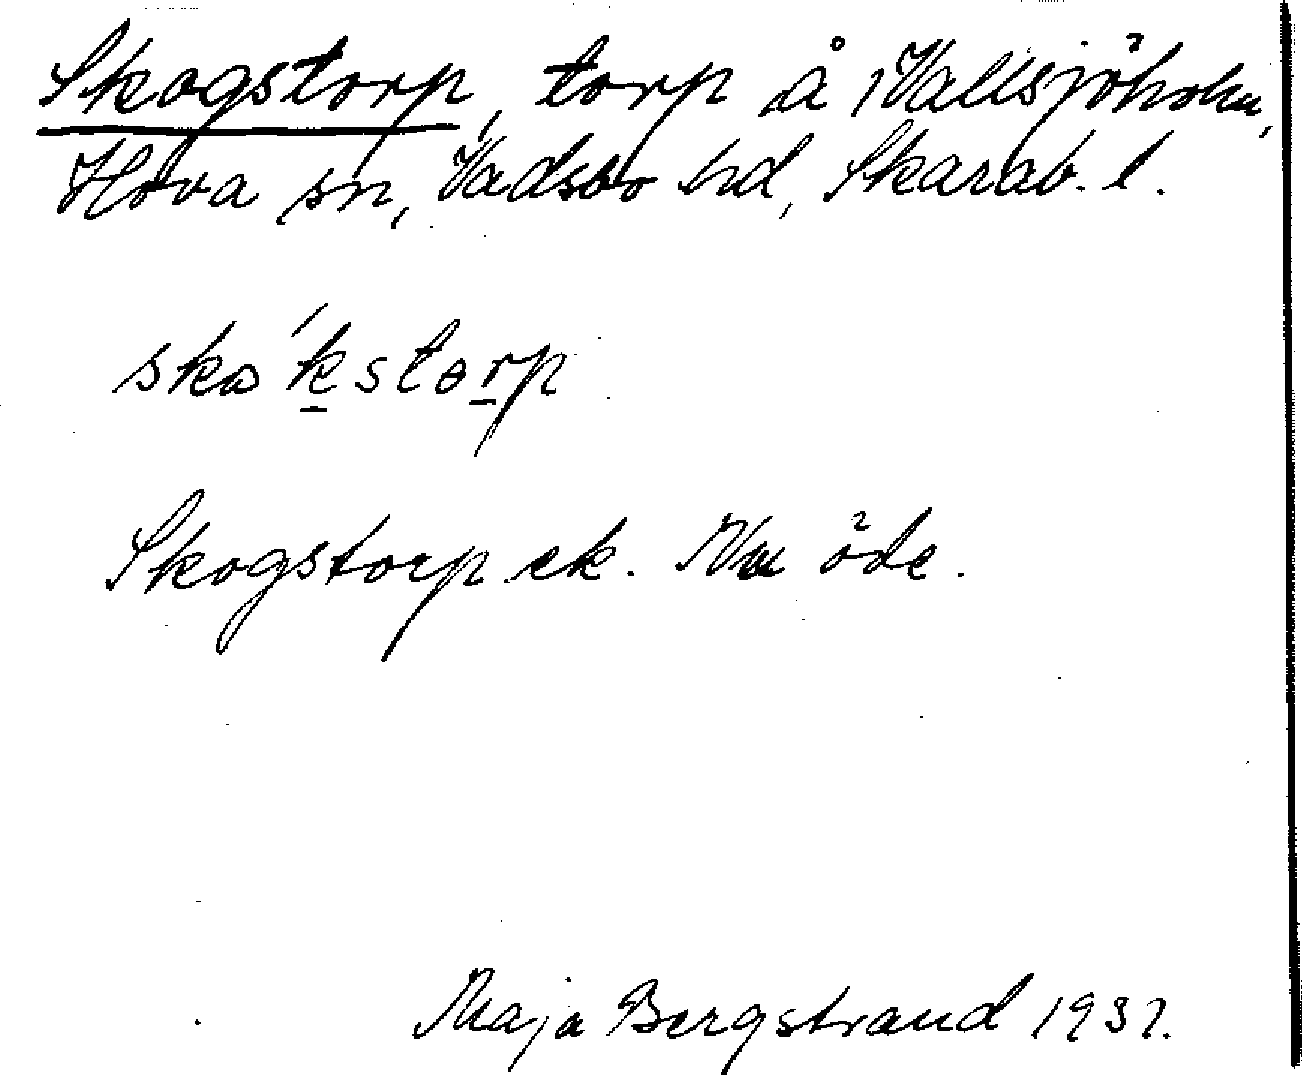 Skogstorp, torp å Vallsjöholm,
Hova sn, Vadsbo hd, Skarab. l.
sko´kstorp
Skogstorp ek. Nu öde.
Maja Bergstrand 1937.